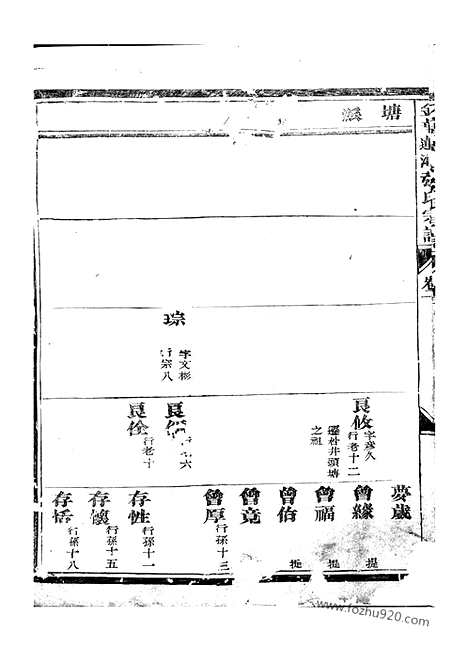 塘
琮
字文彬
行宗八
良攸
字彥久
行老十二
遷杜井頭塘
之祖
良
六
良佺
行老十
夢歲
曾緣
提
曾福
提
曾佰
提
曾竟
曾厚
行孫十三
存性
行孫十一
存讓
行孫十五
存恬
行孫十八
www.fozhu920.com